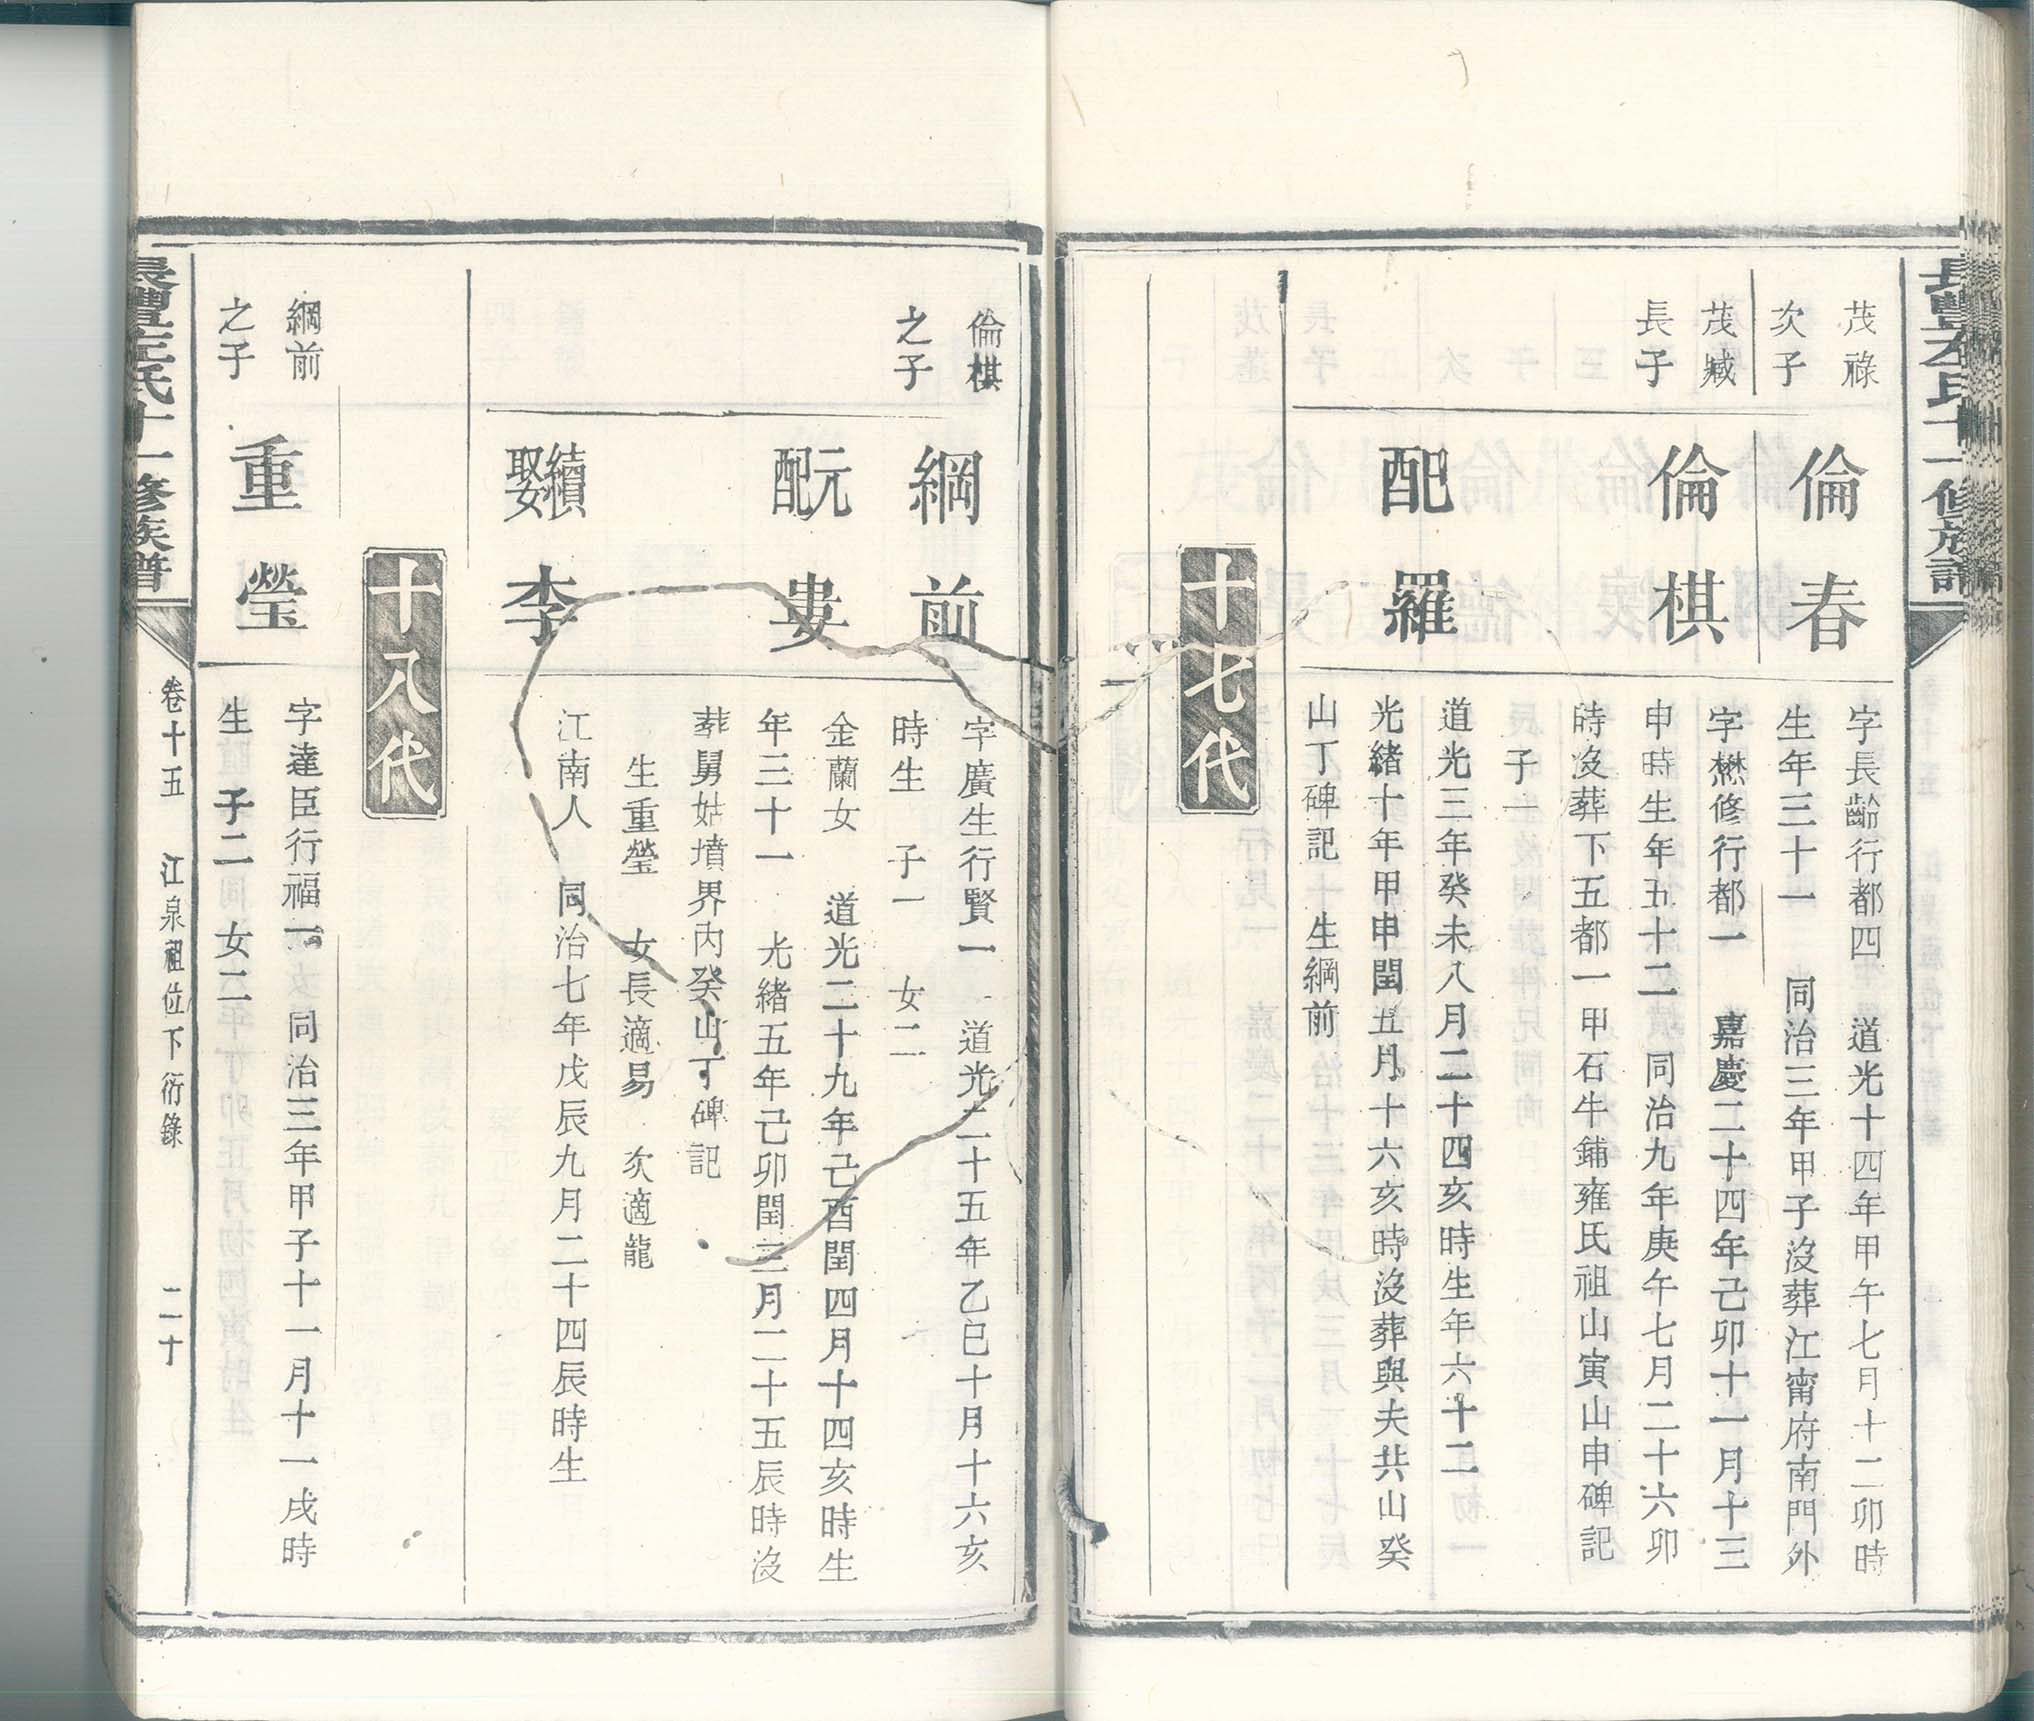 長豐左氏十一修族譜
茂祿
次子
倫春
字長齡行都四　道光十四年甲午七月十二卯時
生年三十一　同治三年甲子沒葬江甯府南門外
茂臧
長子
倫棋
字懋修行都一　嘉慶二十四年己卯十一月十三
申時生年五十二　同治九年庚午七月二十六卯
時沒葬下五都一甲石牛鋪雍氏祖山寅山申碑記
子一
配羅
道光三年癸未八月二十四亥時生年六十二
光緒十年甲申閏五月十六亥時沒葬與夫共山癸
山丁碑記　生綱前
十七代
倫棋
之子
綱前
字廣生行賢一　道光二十五年乙巳十月十六亥
時生　子一　女二
元配婁
金蘭女　道光二十九年己酉閏四月十四亥時生
年三十一　光緒五年己卯閏三月二十五辰時沒
葬舅姑墳界內癸山丁碑記
生重瑩　女長適易　次適龍
續娶李
江南人　同治七年戊辰九月二十四辰時生
十八代
綱前
之子
重瑩
字達臣行福一　同治三年甲子十一月十一戌時
生　子二　女二
長豐左氏十一修族譜
卷十五　江泉祖位下衍錄　二十